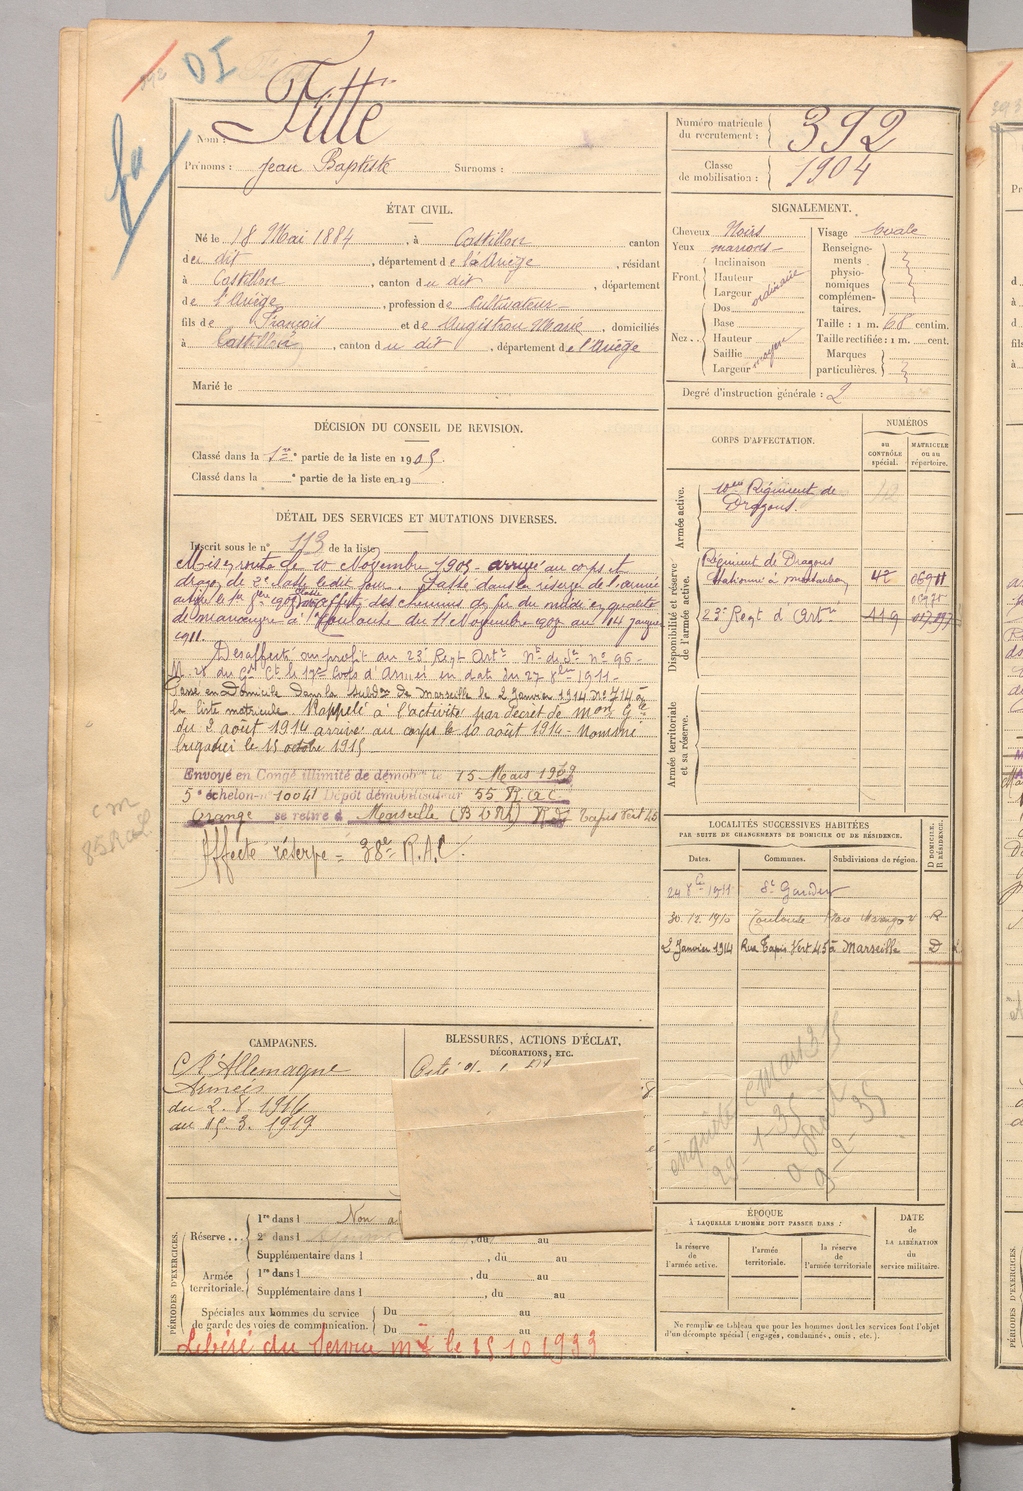 392 DI
Fitte
Nom :
Prénoms : Jean Baptiste Surnoms :
Numéro matricule du recrutement : 392
Classe de mobilisation : 1904
ÉTAT CIVIL.
Né le 18 Mai 1884, à Castillon canton
du dit, département de l'Ariège, résidant
à Castillon, canton du dit, département
de l'Ariège, profession de Cultivateur
fils de François et de Augistrou Marie, domiciliés
à Castillon, canton du dit, département de l'Ariège
Marié le
SIGNALEMENT.
Cheveux Noirs
Yeux marrons
Front. Inclinaison
Hauteur
Largeur ordinaire
Nez. Dos
Base
Hauteur
Saillie
Largeur moyen
Visage ovale
Renseignements physionomiques complémentaires.
Taille : 1 m. 68 centim.
Taille rectifiée : 1 m. cent.
Marques particulières.
Degré d'instruction générale : 2
DÉCISION DU CONSEIL DE REVISION.
Classé dans la 1re partie de la liste en 1905.
Classé dans la e partie de la liste en 19
CORPS D'AFFECTATION.
NUMÉROS
au CONTRÔLE spécial.
MATRICULE ou au répertoire.
Armée active.
10me Régiment de
Dragons.
Disponibilité et réserve de l'armée active.
Régiment de Dragons
stationné à Montauban 42
23e Regt d'Artie 449
Armée territoriale et sa réserve.
DÉTAIL DES SERVICES ET MUTATIONS DIVERSES.
Inscrit sous le n° 113 de la liste
Mis en route le 10 Novembre 1905 arrivé au corps et
dragon de 2e classe le dit jour. Passé dans la réserve de l'armée
active le 1er 8bre 1907 Classé affecté des chemins de fer du midi en qualité
de manœuvre à Toulouse du 11 Novembre 1907 au 14 janvier
1911.
Désaffecté au profit du 23e Regt Artie
le 17e Corps d'Armée en date du 27 8bre 1911.
Passé en Domicile dans la subdon de Marseille le 2 Janvier 1914 N° 714 à
la liste matricule. Rappelé à l'activité par décret de Mon Gle
du 2 août 1914 arrivé au corps le 10 août 1914 - Nommé
brigadier le 15 octobre 1915
Envoyé en Congé illimité de démobon le 15 Mars 1919
5e échelon n° 10041 Dépôt démobilisateur 55 R.A.C.
Orange se retire à Marseille (B d Rh) Rue Tapis Vert 45
Affecté réserve = 38e R.A.C.
LOCALITÉS SUCCESSIVES HABITÉES
PAR SUITE DE CHANGEMENTS DE DOMICILE OU DE RÉSIDENCE.
Dates. Communes. Subdivisions de région. D DOMICILE. R RÉSIDENCE.
24 8bre 1911 St Gaudens
30.12.1910 Toulouse Place R
2 Janvier 1914 Rue Tapis Vert 45 à Marseille D
CAMPAGNES.
Ct l'Allemagne
Armées
du 2.8.1914
au 15.3.1919
BLESSURES, ACTIONS D'ÉCLAT,
DÉCORATIONS, ETC.
PÉRIODES D'EXERCICES.
Réserve... 1re dans l Non a
2e dans l , du au
Supplémentaire dans l , du au
Armée territoriale. 1re dans l , du au
Supplémentaire dans l , du au
Spéciales aux hommes du service de garde des voies de communication. Du au
Du au
Libéré du Service mre le 15.10.1933
ÉPOQUE
À LAQUELLE L'HOMME DOIT PASSER DANS :
la réserve de l'armée active.
l'armée territoriale.
la réserve de l'armée territoriale
DATE
DE LA LIBÉRATION
du
service militaire.
Ne remplir ce tableau que pour les hommes dont les services font l'objet
d'un décompte spécial (engagés, condamnés, omis, etc.).